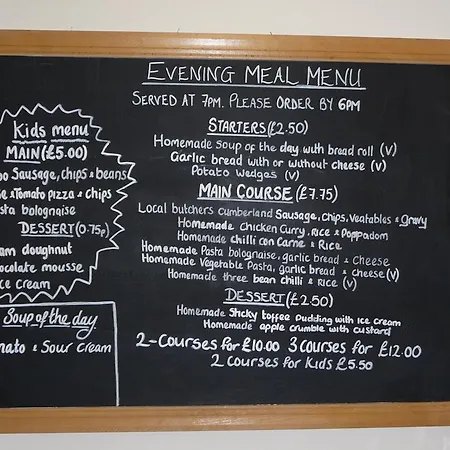 EVENING MEAL MENU
SERVED AT 7PM. PLEASE ORDER BY 6PM
STARTERS (£2.50)
Homemade Soup of the day with bread roll (V)
Garlic bread with or without cheese (V)
Potato Wedges (V)
MAIN COURSE (£7.75)
Local butchers Cumberland Sausage, Chips, Veatables & Gravy
Homemade Chicken Curry, Rice & Poppadom
Homemade chilli con Carne & Rice
Homemade Pasta bolognaise, garlic bread & Cheese
Homemade Vegetable Pasta, garlic bread & cheese (V)
Homemade three bean chilli & rice (V)
DESSERT (£2.50)
Homemade Sticky toffee Pudding with ice cream
Homemade apple crumble with custard
2-Courses for £10.00 3 courses for £12.00
2 courses for Kids £5.50
Kids menu
MAIN (£5.00)
Sausage, chips & beans
& Tomato pizza & chips
bolognaise
DESSERT (0.75p)
doughnut
mousse
cream
Soup of the day
& Sour Cream